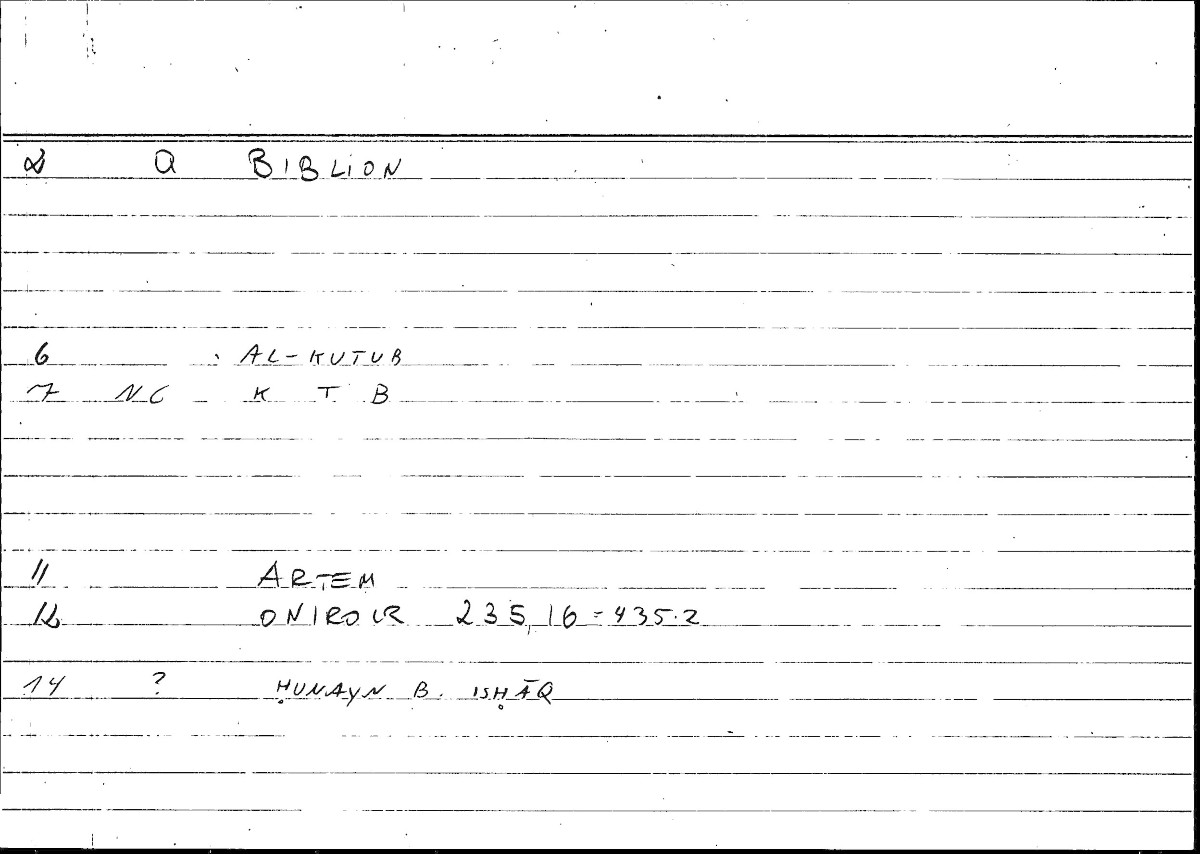 2 a BIBLION
6 AL-KUTUB
7 NC K T B
11 ARTEM
12 ONIROCR 235,16=435.2
14 ? ḤUNAYN B. ISḤĀQ